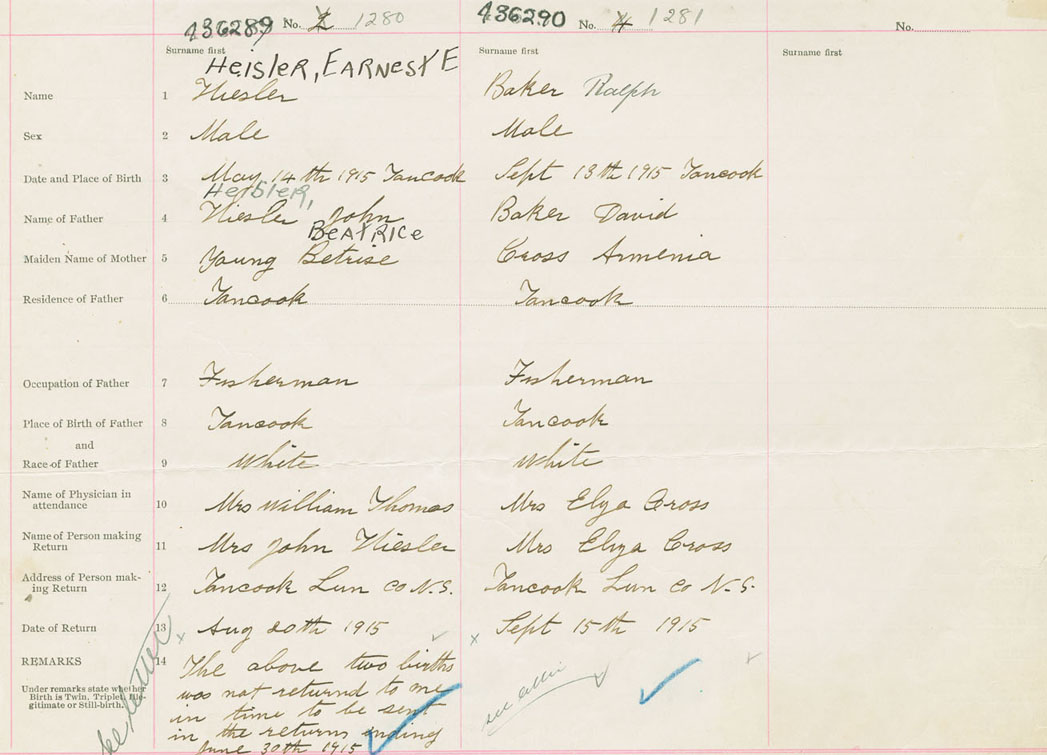 436289 No. 2 1280 436290 No. 4 1281 No.
Surname first Surname first Surname first
Heisler, EARNEST E
Name 1 Hiesler Baker Ralph
Sex 2 Male Male
Date and Place of Birth 3 May 14th 1915 Tancook Sept 13th 1915 Tancook
HEISLER,
Name of Father 4 Hiesler John Baker David
BEATRICE
Maiden Name of Mother 5 Young Betrise Cross Armenia
Residence of Father 6 Tancook Tancook
Occupation of Father 7 Fisherman Fisherman
Place of Birth of Father 8 Tancook Tancook
and
Race of Father 9 White White
Name of Physician in
attendance 10 Mrs William Thomas Mrs Elyza Cross
Name of Person making
Return 11 Mrs John Hiesler Mrs Elyza Cross
Address of Person mak-
ing Return 12 Tancook Lun Co N.S. Tancook Lun Co N.S.
Date of Return 13 Aug 20th 1915 Sept 15th 1915
REMARKS 14 The above two births
Under remarks state whether
Birth is Twin, Triplet, Ille-
gitimate or Still-birth.
was not returnd to me
in time to be sent
in the returns ending
June 30th 1915
see letter